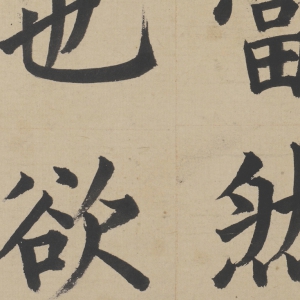 當然
也欲